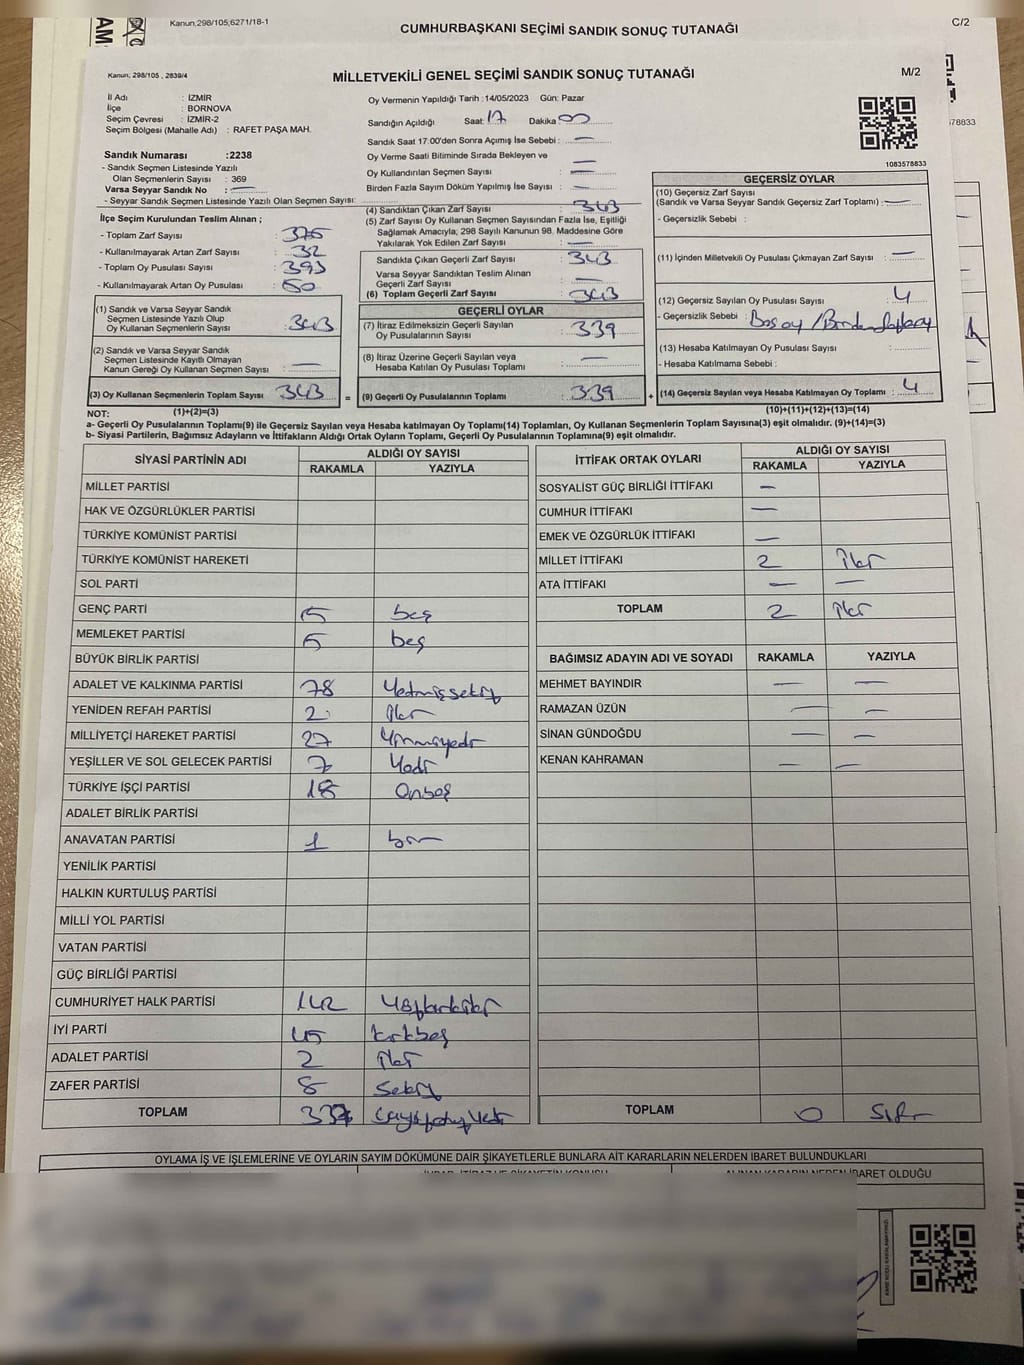 Kanun,298/105,6271/18-1
CUMHURBAŞKANI SEÇİMİ SANDIK SONUÇ TUTANAĞI
C/2
AM
Kanun, 298/105, 2839/4
MİLLETVEKİLİ GENEL SEÇİMİ SANDIK SONUÇ TUTANAĞI
M/2
İl Adı : İZMİR
İlçe : BORNOVA
Seçim Çevresi : İZMİR-2
Seçim Bölgesi (Mahalle Adı) : RAFET PAŞA MAH.
Oy Vermenin Yapıldığı Tarih :14/05/2023 Gün: Pazar
Sandığın Açıldığı Saat: 17 Dakika 00
Sandık Saat 17:00'den Sonra Açımış İse Sebebi : —
Oy Verme Saati Bitiminde Sırada Bekleyen ve
Oy Kullandırılan Seçmen Sayısı —
Birden Fazla Sayım Döküm Yapılmış İse Sayısı : —
1083578833
78833
Sandık Numarası :2238
- Sandık Seçmen Listesinde Yazılı
Olan Seçmenlerin Sayısı : 369
Varsa Seyyar Sandık No : —
- Seyyar Sandık Seçmen Listesinde Yazılı Olan Seçmen Sayısı:
İlçe Seçim Kurulundan Teslim Alınan ;
- Toplam Zarf Sayısı : 375
- Kullanılmayarak Artan Zarf Sayısı : 32
- Toplam Oy Pusulası Sayısı : 393
- Kullanılmayarak Artan Oy Pusulası : 50
(1) Sandık ve Varsa Seyyar Sandık
Seçmen Listesinde Yazılı Olup
Oy Kullanan Seçmenlerin Sayısı : 343
(2) Sandık ve Varsa Seyyar Sandık
Seçmen Listesinde Kayıtlı Olmayan
Kanun Gereği Oy Kullanan Seçmen Sayısı : —
(3) Oy Kullanan Seçmenlerin Toplam Sayısı 343 =
(4) Sandıktan Çıkan Zarf Sayısı : 343
(5) Zarf Sayısı Oy Kullanan Seçmen Sayısından Fazla İse, Eşitliği
Sağlamak Amacıyla; 298 Sayılı Kanunun 98. Maddesine Göre
Yakılarak Yok Edilen Zarf Sayısı : —
Sandıkta Çıkan Geçerli Zarf Sayısı : 343
Varsa Seyyar Sandıktan Teslim Alınan
Geçerli Zarf Sayısı : —
(6) Toplam Geçerli Zarf Sayısı : 343
GEÇERLİ OYLAR
(7) İtiraz Edilmeksizin Geçerli Sayılan
Oy Pusulalarının Sayısı : 339
(8) İtiraz Üzerine Geçerli Sayılan veya
Hesaba Katılan Oy Pusulası Toplamı : —
(9) Geçerli Oy Pusulalarının Toplamı : 339 +
GEÇERSİZ OYLAR
(10) Geçersiz Zarf Sayısı
(Sandık ve Varsa Seyyar Sandık Geçersiz Zarf Toplamı) : —
- Geçersizlik Sebebi :
(11) İçinden Milletvekili Oy Pusulası Çıkmayan Zarf Sayısı : —
(12) Geçersiz Sayılan Oy Pusulası Sayısı : 4
- Geçersizlik Sebebi : Boş oy /
(13) Hesaba Katılmayan Oy Pusulası Sayısı :
- Hesaba Katılmama Sebebi :
(14) Geçersiz Sayılan veya Hesaba Katılmayan Oy Toplamı : 4
NOT: (1)+(2)=(3) (10)+(11)+(12)+(13)=(14)
a- Geçerli Oy Pusulalarının Toplamı(9) ile Geçersiz Sayılan veya Hesaba katılmayan Oy Toplamı(14) Toplamları, Oy Kullanan Seçmenlerin Toplam Sayısına(3) eşit olmalıdır. (9)+(14)=(3)
b- Siyasi Partilerin, Bağımsız Adayların ve İttifakların Aldığı Ortak Oyların Toplamı, Geçerli Oy Pusulalarının Toplamına(9) eşit olmalıdır.
SİYASİ PARTİNİN ADI ALDIĞI OY SAYISI
RAKAMLA YAZIYLA
MİLLET PARTİSİ
HAK VE ÖZGÜRLÜKLER PARTİSİ
TÜRKİYE KOMÜNİST PARTİSİ
TÜRKİYE KOMÜNİST HAREKETİ
SOL PARTİ
GENÇ PARTİ 5 beş
MEMLEKET PARTİSİ 5 beş
BÜYÜK BİRLİK PARTİSİ
ADALET VE KALKINMA PARTİSİ 78 Yetmişsekiz
YENİDEN REFAH PARTİSİ 2 İki
MİLLİYETÇİ HAREKET PARTİSİ 27 Yirmiyedi
YEŞİLLER VE SOL GELECEK PARTİSİ 7 Yedi
TÜRKİYE İŞÇİ PARTİSİ 15 Onbeş
ADALET BİRLİK PARTİSİ
ANAVATAN PARTİSİ 1 bir
YENİLİK PARTİSİ
HALKIN KURTULUŞ PARTİSİ
MİLLİ YOL PARTİSİ
VATAN PARTİSİ
GÜÇ BİRLİĞİ PARTİSİ
CUMHURİYET HALK PARTİSİ 142 Yüzkırkiki
İYİ PARTİ 45 kırkbeş
ADALET PARTİSİ 2 İki
ZAFER PARTİSİ 8 Sekiz
TOPLAM 337
İTTİFAK ORTAK OYLARI ALDIĞI OY SAYISI
RAKAMLA YAZIYLA
SOSYALİST GÜÇ BİRLİĞİ İTTİFAKI —
CUMHUR İTTİFAKI —
EMEK VE ÖZGÜRLÜK İTTİFAKI —
MİLLET İTTİFAKI 2 İki
ATA İTTİFAKI — —
TOPLAM 2 İki
BAĞIMSIZ ADAYIN ADI VE SOYADI RAKAMLA YAZIYLA
MEHMET BAYINDIR — —
RAMAZAN ÜZÜN — —
SİNAN GÜNDOĞDU — —
KENAN KAHRAMAN — —
TOPLAM 0 Sıfır
OYLAMA İŞ VE İŞLEMLERİNE VE OYLARIN SAYIM DÖKÜMÜNE DAİR ŞİKAYETLERLE BUNLARA AİT KARARLARIN NELERDEN İBARET BULUNDUKLARI
İHBAR, İTİRAZ VE ŞİKAYETİN KONUSU ALINAN KARARIN NEDEN İBARET OLDUĞU